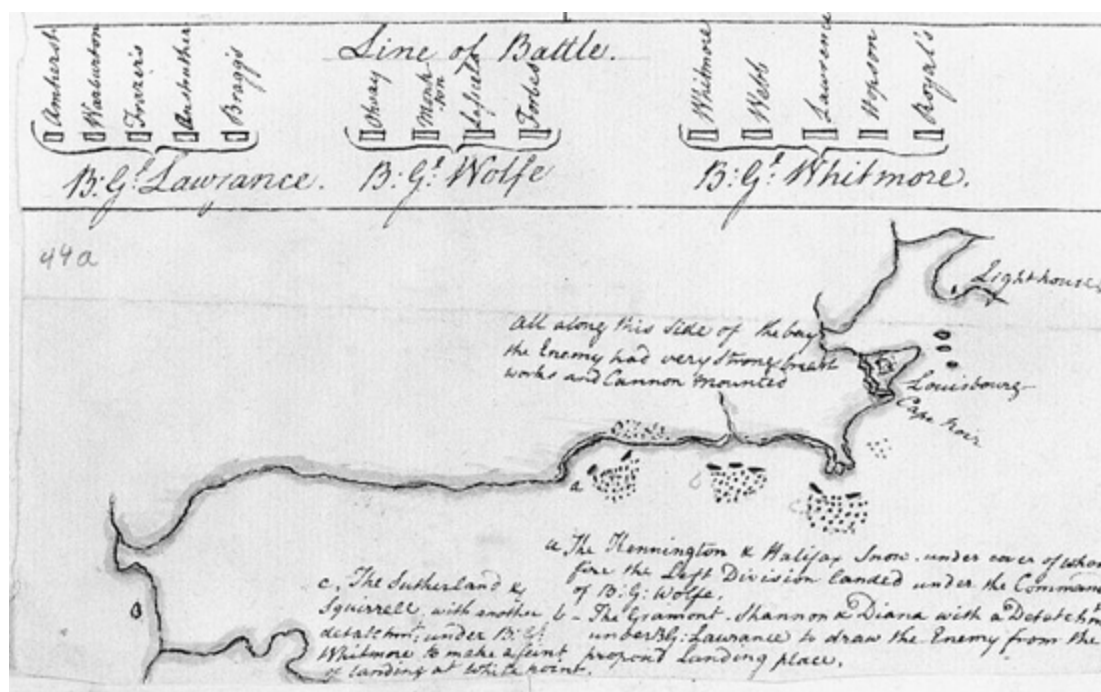 Line of Battle.
Amherst
Warburton
Frazer's
Anstruther
Bragg's
Otway
Monk
ton
Lascells
Forbes
Whitmore
Webb
Lawrence
Hopson
Royal's
B: Gl. Lawrance.
B: Gl. Wolfe
B: Gl. Whitmore.
44a
Lighthouse
All along this side of the bay
the Enemy had very strong breast
works and Cannon mounted
Louisbourg
Cape Noir
a
b
c
a The Kennington & Halifax Snow. under cover of whose
fire the Left Division landed under the Command
of B: G: Wolfe.
b - The Gramont. Shannon & Diana with a Detatchmt
under BG: Lawrance to draw the Enemy from the
propond Landing place.
c. The Sutherland &
Squirrell, with another
detatchmt. under B: Gl
Whitmore to make a feint
of landing at White point.